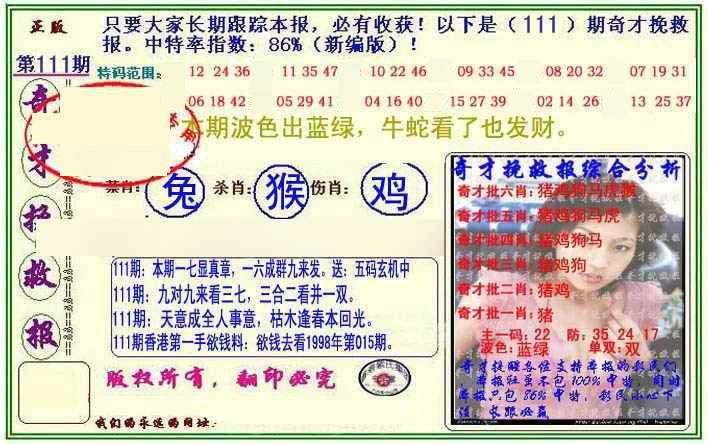 正版
只要大家长期跟踪本报，必有收获！以下是（111）期奇才挽救
报。中特率指数：86%（新编版）！
第111期
特码范围：
12 24 36 11 35 47 10 22 46 09 33 45 08 20 32 07 19 31
06 18 42 05 29 41 04 16 40 15 27 39 02 14 26 13 25 37
本期波色出蓝绿，牛蛇看了也发财。
奇
才
救
报
兔
杀肖：
猴
伤肖：
鸡
111期：本期一七显真章，一六成群九来发。送：五码玄机中
111期：九对九来看三七，三合二看并一双。
111期：天意成全人事意，枯木逢春本回光。
111期香港第一手欲钱料：欲钱去看1998年第015期。
版权所有，翻印必究
我们的永远的网址：
奇才挽救报综合分析
奇才批六肖：猪鸡狗马虎猴
奇才批五肖：猪鸡狗马虎
奇才批四肖：猪鸡狗马
奇才批三肖：猪鸡狗
奇才批二肖：猪鸡
奇才批一肖：猪
主一码：22 防：35 24 17
波色：蓝绿 单双：双